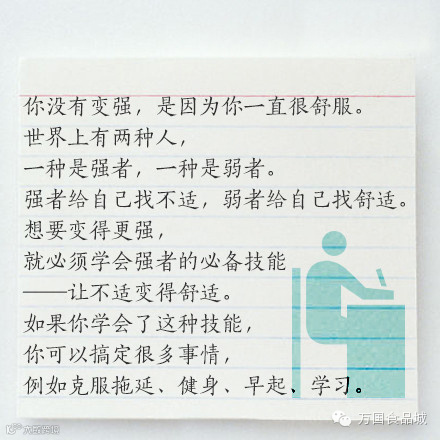 你没有变强，是因为你一直很舒服。
世界上有两种人，
一种是强者，一种是弱者。
强者给自己找不适，弱者给自己找舒适。
想要变得更强，
就必须学会强者的必备技能
——让不适变得舒适。
如果你学会了这种技能，
你可以搞定很多事情，
例如克服拖延、健身、早起、学习。
万国食品城